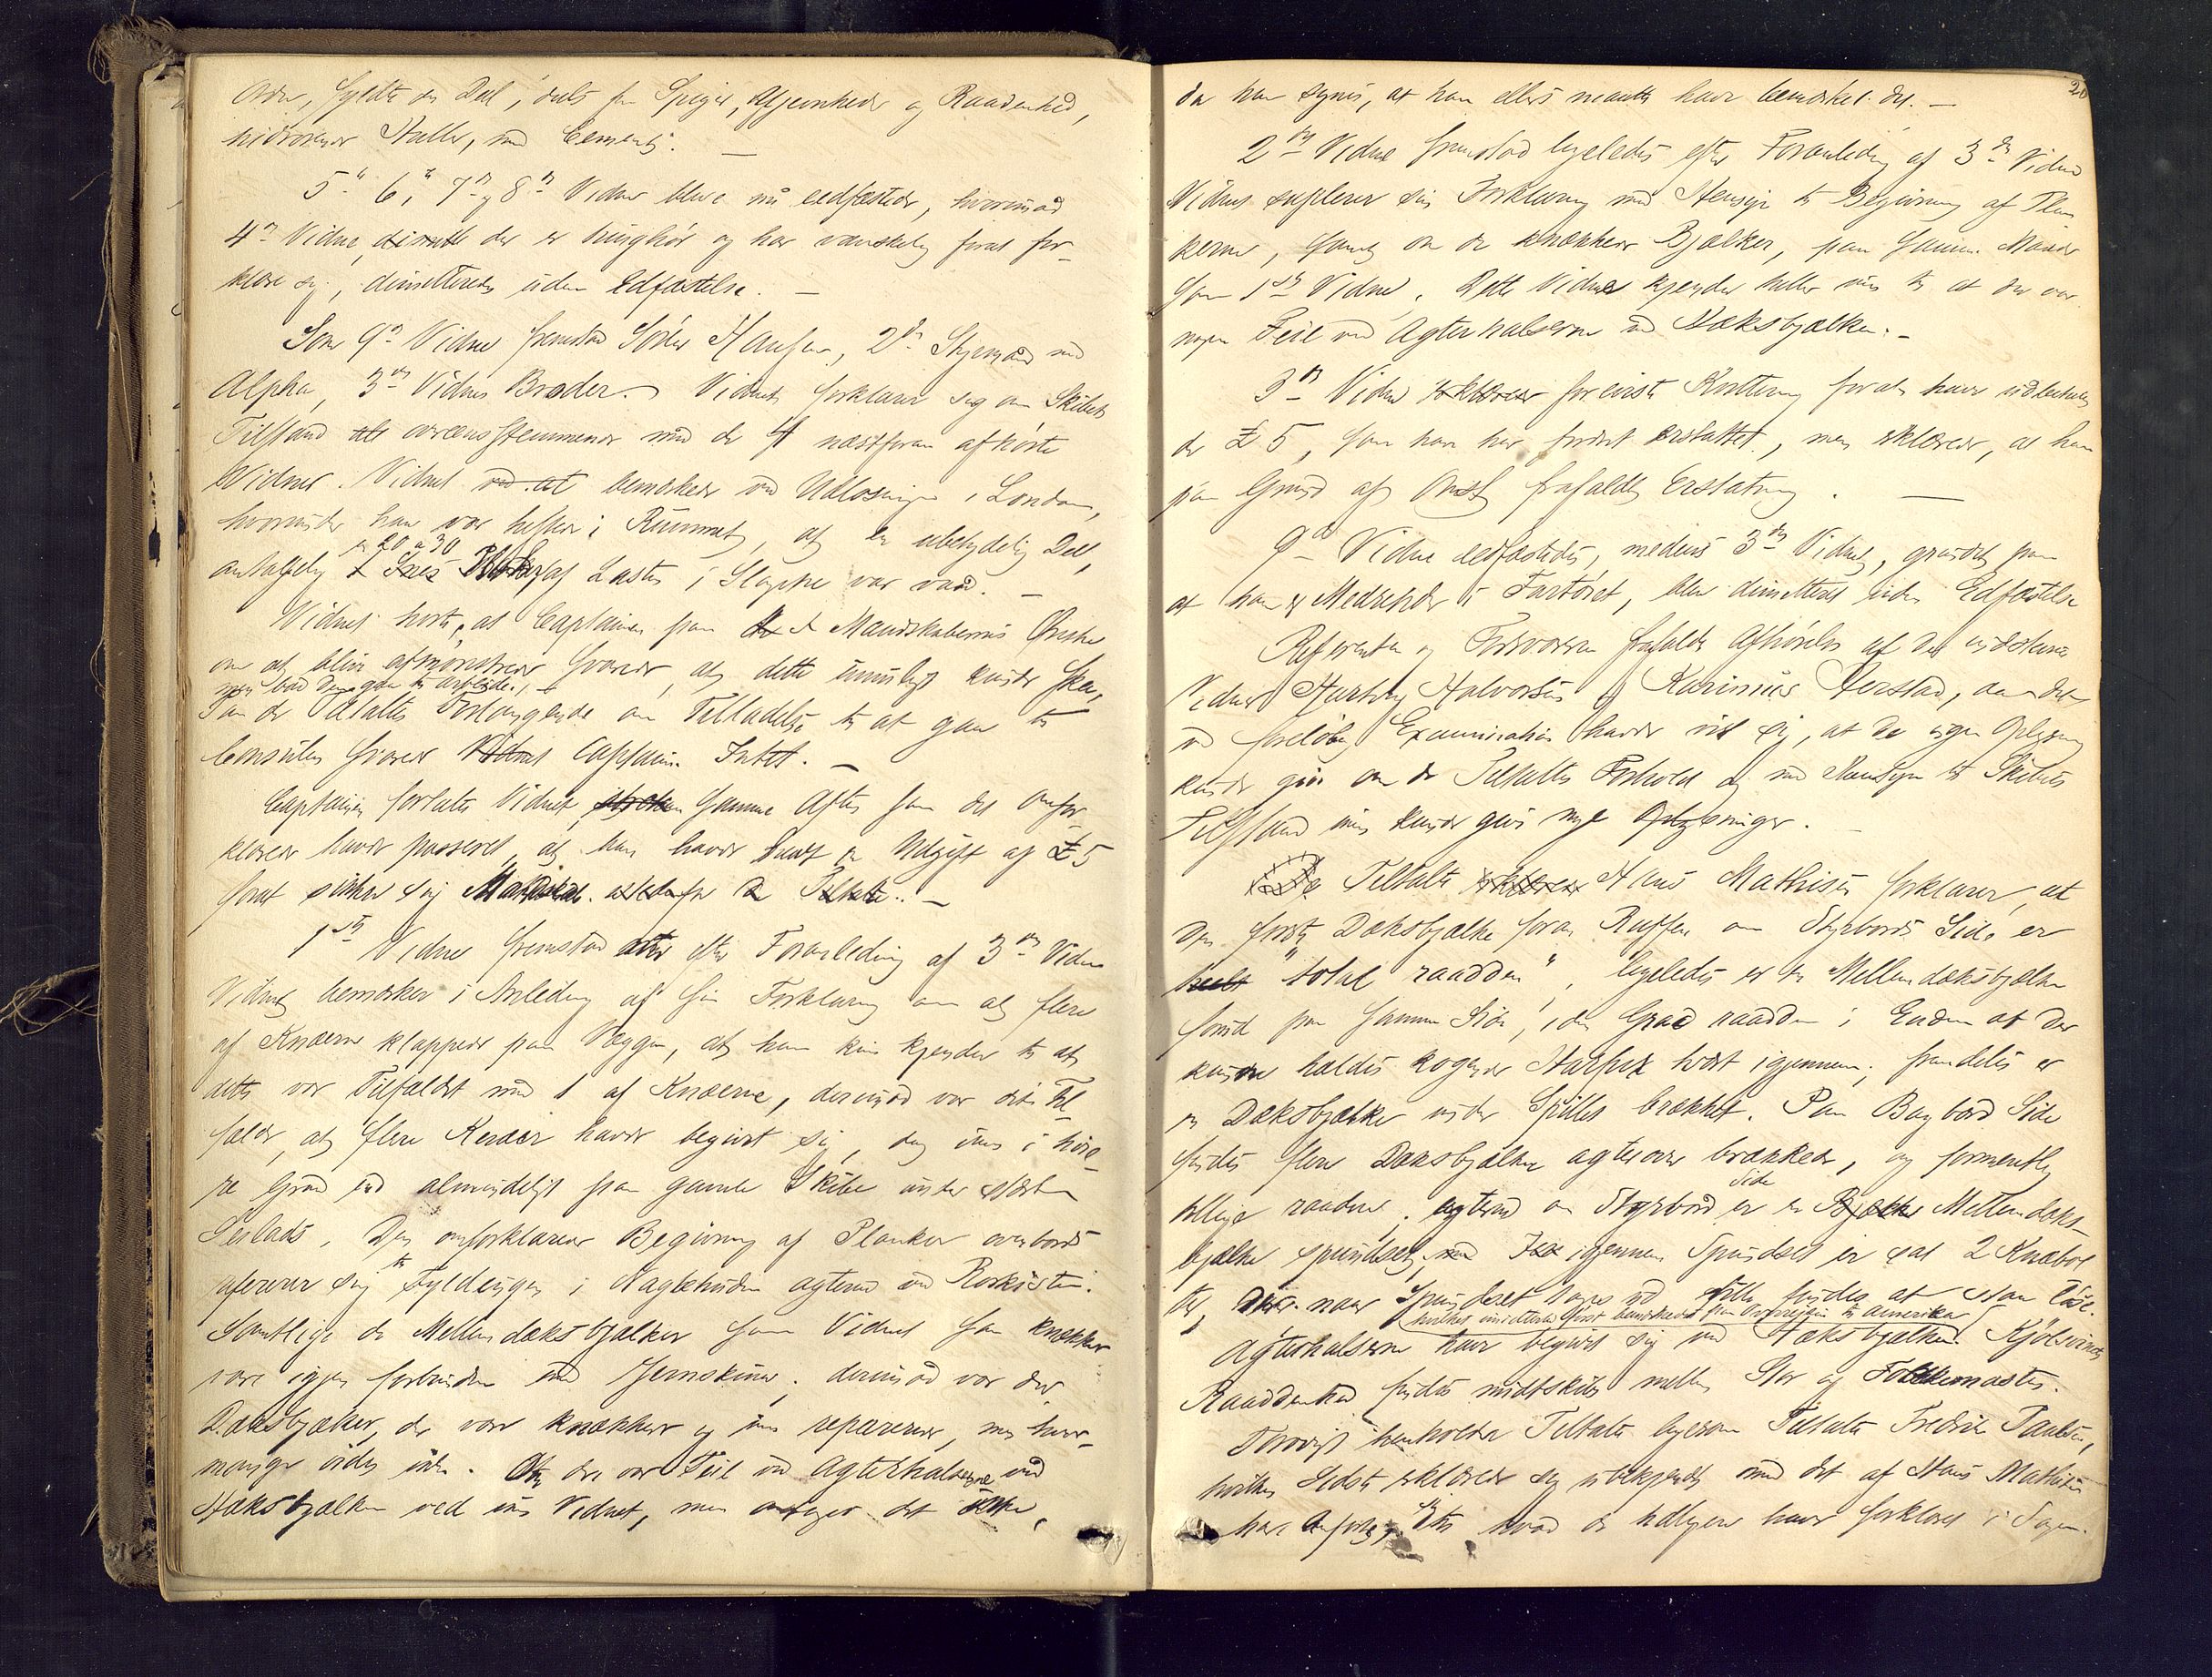 fyldte en Deel, dels for Spiger, Ujevnheder og Raaddenhed,
hidrørende Huller, med Cement.
5te 6te 7de og 8de Vidner bleve nu eedfæstede, hvorimod
4de Vidne, der er tunghør og har vanskelig for at for-
klare sig, dimitteredes uden Edfæstelse. —
Som 9de Vidne fremstod Sören Hansen, 2den Styrmand med
Alpha, 3die Vidnes Broder. Vidnet forklarer sig om Skibets
Tilstand overensstemmende med de 4 næstforan afhørte
Vidner. Vidnet bemærkede ved Udlosningen i London,
hvorunder han var i Rummet, at en ubetydelig Deel,
antagelig en 20 a 30 af Lasten i var vaad. —
Vidnet hørte, at Captainen paa Mandskabernes Ønske
om at blive afmønstrede svarede, at dette umuligt kunde ske,
men bad dem gaa til Arbeide.
Paa de Tiltaltes Forlangende om Tilladelse til at gaa til
Consulen svarede Captainen Intet. —
Captainen fortalte Vidnet, samme Aften som det omfor-
klarede havde passeret, at han havde havt en Udgift af £5
for at sikkre sig
1ste Vidne fremstod atter efter Foranledning af 3die Vidne
Vidnet bemærker i Anledning af sin Forklaring om at flere
af Knæerne klappede paa Væggen, at han kun kjender til at
dette var Tilfældet med 1 af Knæerne, derimod var det Til-
fælde, at flere Knæer havde begivet sig, dog ikke i høie-
re Grad end almindeligt paa gamle Skibe under
Seilads. Den omforklarede Begivning af Planker overbords
refererer sig til Fyldingen i Hagtehuden agterud ved
Samtlige de Mellemdæksbjælker som Vidnet saa knækkede
vare igjen forbundne med Jernskinner, derimod var der
Dæksbjælker, der vare knækkede og ikke reparerede, men hvor-
mange vides ikke. Om der var Feil ved Agterhalserne ved
Hæksbjælken ved ikke Vidnet, men antager det ikke,
20
da han synes, at han ellers maatte have bemærket det. —
2det Vidne fremstod ligeledes efter Foranledning af 3die Vidne
Vidnet suplerer sin Forklaring med Hensyn til Begivning af Plan
kerne, samt om de knækkede Bjælker, paa samme Maade
som 1ste Vidne. Dette Vidne kjender heller ikke til at der var
nogen Feil ved Agterhalserne ved Hæksbjælken. —
3die Vidne foreviste Kvittering for at have udbetalt
de £ 5, som han har fordret erstattet, men erklærede, at han
paa Grund af frafaldt Erstatning. —
9de Vidne eedfæstedes, medens 3die Vidne, grundet paa
at han er Medreder i Fartøiet, blev dimitteret uden Edfæstelse
Referenten og Forsvareren frafaldt Afhørelse af de
Vidner Halvorsen og Karinius da det
ved foreløbig Examination havde vist sig, at de ingen Oplysning
kunde give om de Tiltaltes Forhold og med Hensyn til Skibets
Tilstand ikke kunde give nye Oplysninger. —
Tiltalte Hans Mathisen forklarer, at
den første Dæksbjælke foran Ruffen om Styrbords Side er
"total raadden", ligeledes er en Mellemdæksbjælke
forud paa samme Side, i den Grad raadden i Enden at der
kunde holdes kogende Harpix tvert igjennem; fremdeles er
en Dæksbjælke under Spillet brækket. Paa Bagbord Side
findes flere Dæksbjælker agterover brækkede, og formentlig
tillige raadne, agterud om Styrbord Side er en Mellemdæks-
bjælke spundset, igjennem Spundset er sat 2 Knæbol
ter, naar Spundset tages ud vil findes at løse.
hvilket imidlertid først bemærkedes paa Overreisen til Amerika
Agterhalserne have begivet sig ved Hæksbjælken. Kjølsvinets
Raaddenhed findes midtskibs mellem Stor og Fokkemasten.
Forøvrigt henholder Tiltalte ligesom Tiltalte Fredrik Paulsen,
hvilken Sidste erklærede sig ubekjendt med det af Hans Mathisen
her Anførte, sig til hvad de tidligere have forklaret i Sagen.